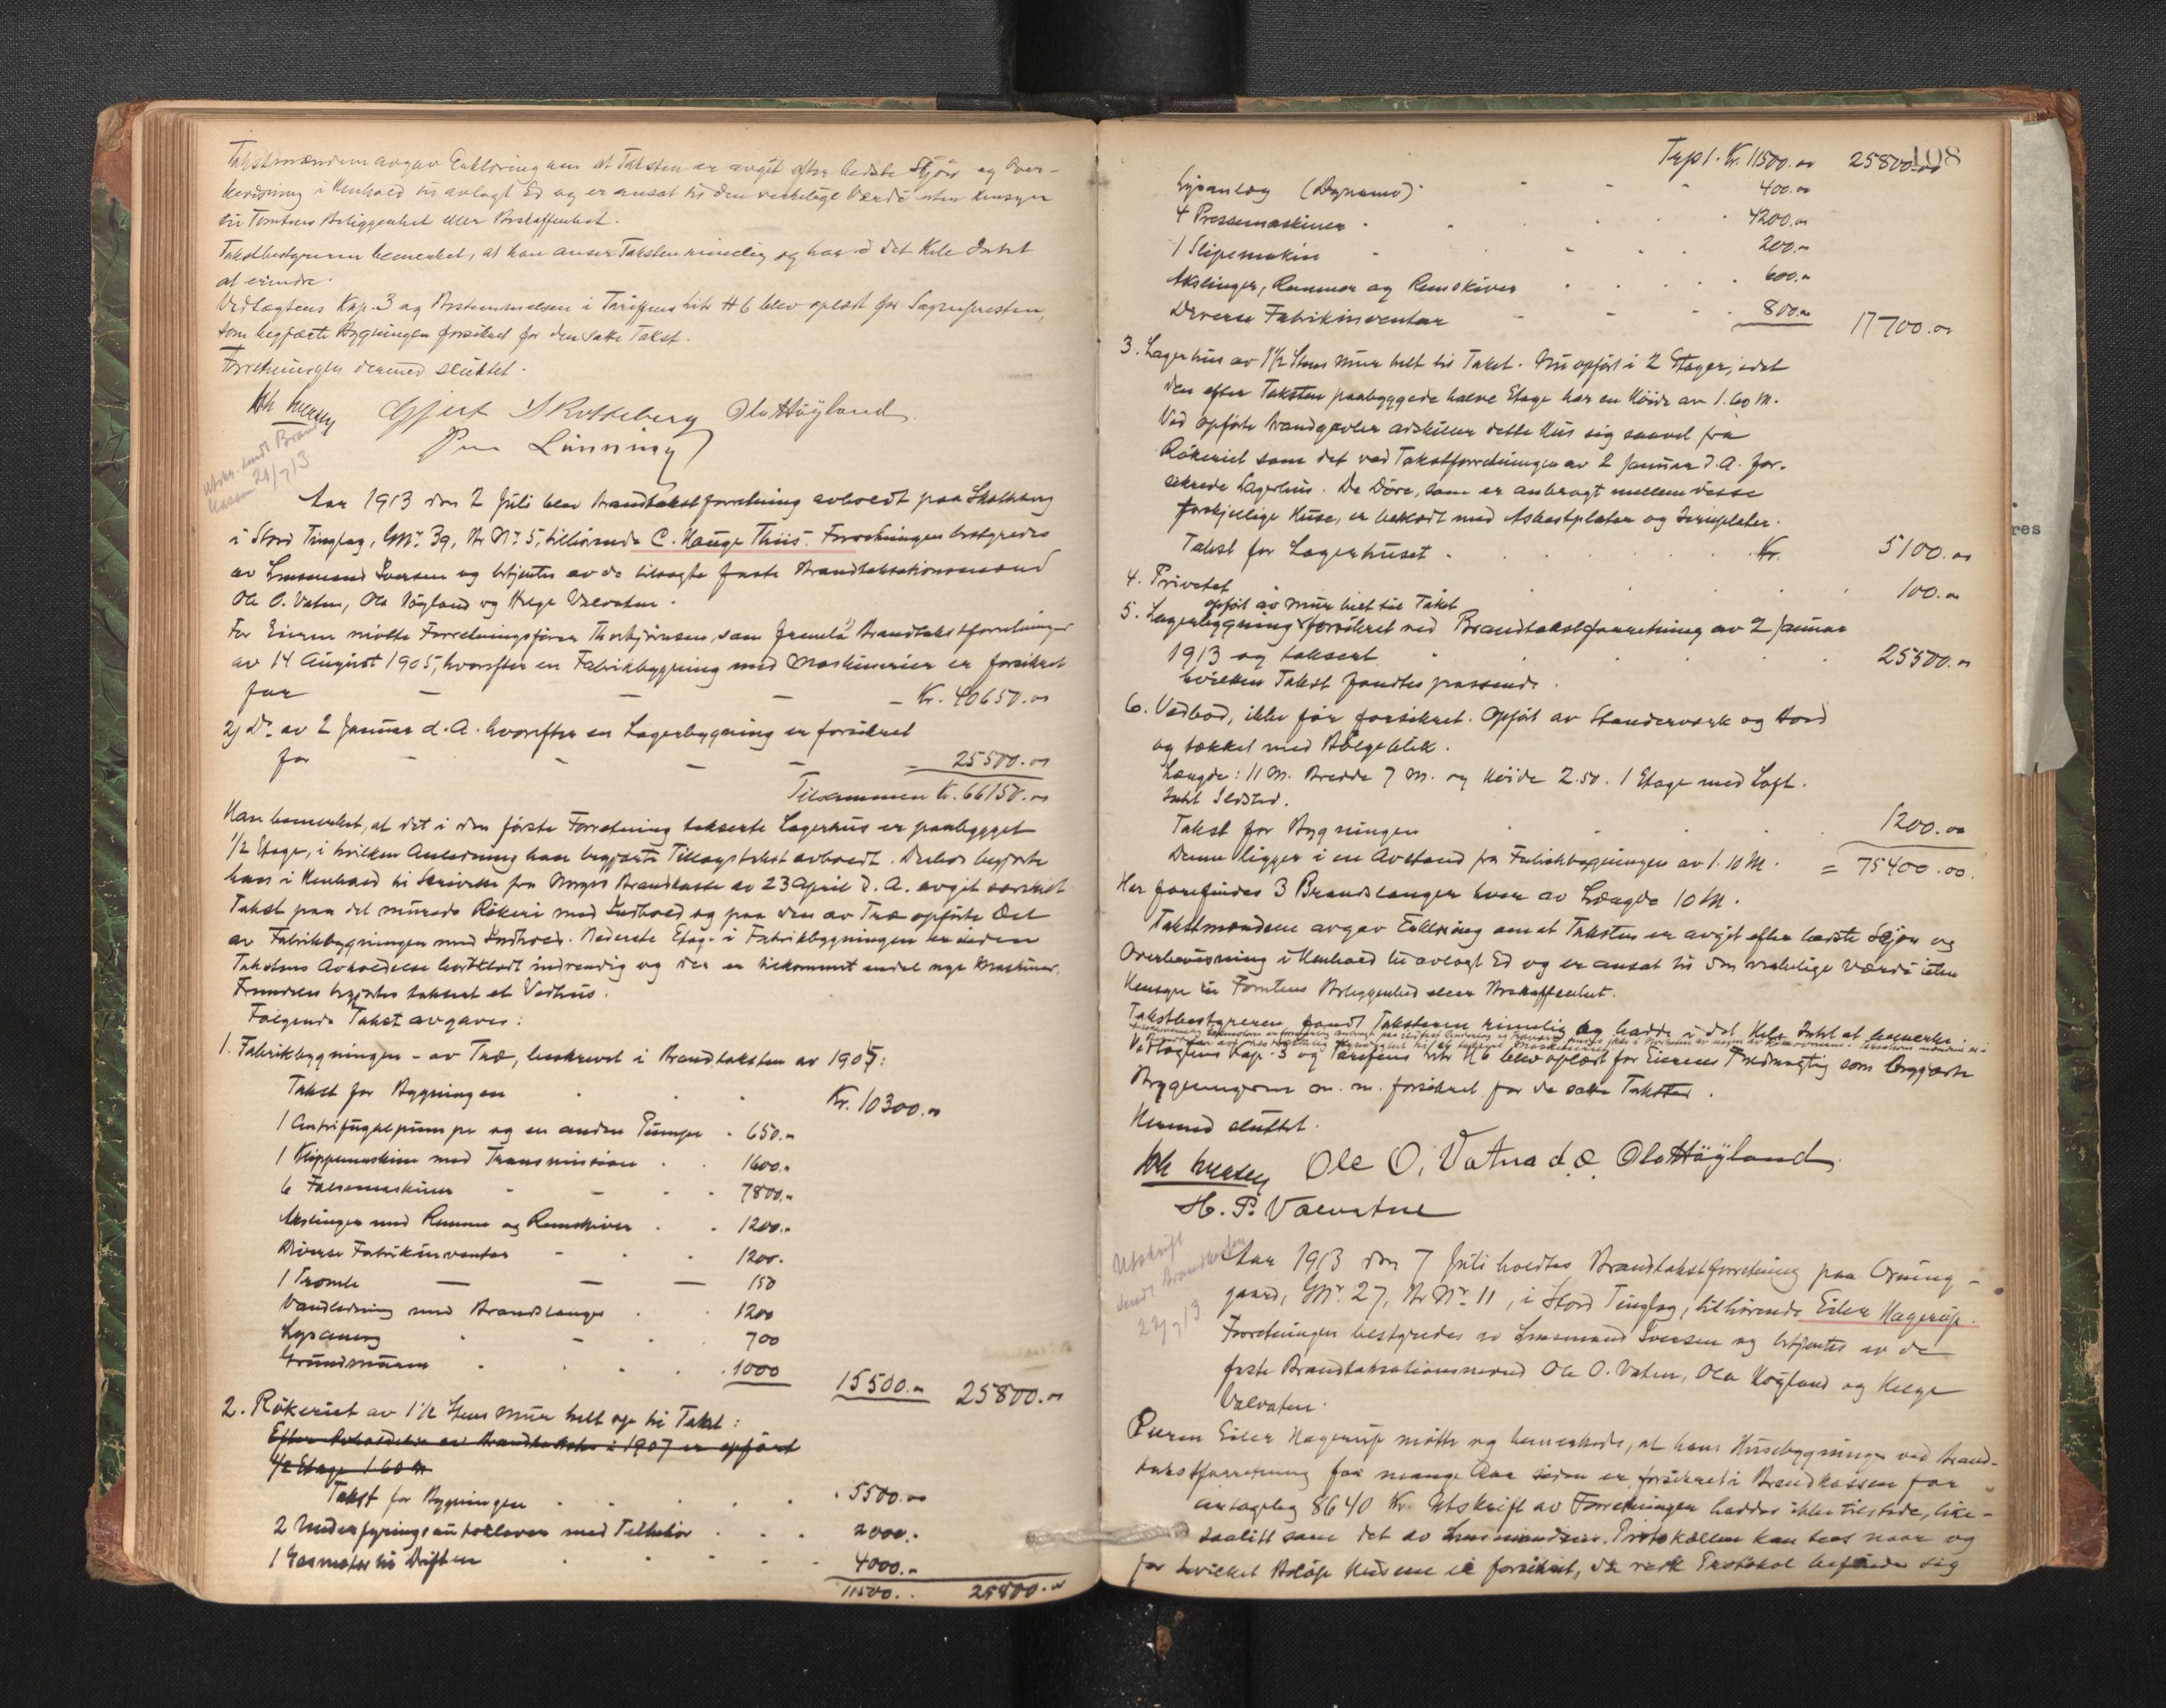 Takstmændene avgav Erklæring om at Taksten er avgit efter bedste Skjøn og Over-
bevisning i Henhold til avlagt Ed og er ansat til den virkelige Værdi uten Hensyn
til Tomtens Beliggenhet eller Beskaffenhet.
Takstbestyreren bemerket, at han anser Taksten rimelig og har i det Hele Intet
at erindre.
Vedtægtens Kap. 3 og Bestemmelsen i Tariffens Litr H 6 blev oplæst for
som begjærte Bygningen forsikret for den satte Takst.
Forretningen dermed sluttet.
Joh Iversen Gjert Rotseberg Ola Høyland
Lønning
Utskr. sendt Brand
kassen 21/7 13
Aar 1913 den 2 Juli blev Brandtakstforretning avholdt paa
i Stord Tinglag, GNr. 39, Br Nr. 5, tilhørende C. Hauge Thiis. Forretningen bestyredes
av Lensmand Iversen og betjentes av de tilsagte faste Brandtaksationsmænd
Ole O. Vatne, Ola Høyland og Helge Valvatne.
For Eieren møtte Forretningsfører Thorbjørnsen, som fremla 1) Brandtakstforretninger
av 14 August 1905, hvorefter en Fabrikbygning med Maskinerier er forsikret
for – – – – Kr. 40650.00
2) Do. av 2 Januar d. A. hvorefter en Lagerbygning er forsikret
for – – – – – 25500.00
Tilsammen Kr. 66150.00
Han bemerket, at det i den første Forretning takserte Lagerhus er paabygget
1/2 Etage, i hvilken Anledning han begjærte Tillægstakst avholdt. Derhos begjærte
han i Henhold til Skrivelse fra Norges Brandkasse av 23 April d. A. avgit særskilt
Takst paa det murede Røkeri med Indhold og paa den av Træ opførte Del
av Fabrikbygningen med Indhold. Nederste Etage i Fabrikbygningen er siden
Takstens Avholdelse bordklædt indvendig og der er tilkommet endel nye Maskiner.
Fremdeles begjærtes taksert et Vedhus.
Følgende Takst avgaves:
1. Fabrikbygningen – av Træ, beskrevet i Brandtaksten av 1905:
Takst for Bygningen . . . Kr. 10300.00
1 Centrifugalpumpe og en anden Pumpe . 650.-
1 Klippemaskine med Transmission . . 1600.-
6 Falsemaskiner - - . . 7800.-
Akslinger med Remme og Remskiver . . 1200.-
Diverse Fabrikinventar - . . 1200.
1 Tromle — — — 150
Vandledning med Brandslanger . . 1200
Lysanlæg . - . 700
Grundmuren . . . . 1000 15500.- 25800.00
2. Røkeriet av 1 1/2 Stens Mur helt op til Taket:
Efter Avholdelse av Brandtaksten i 1907 er opført
1/2 Etage 1.60 M
Takst for Bygningen . . . . . 5500.00
2 Underfyringsautoklaver med Tilbehør . . . 2000.-
1 Gasmotor til Driften . . . . 4000.-
11500.. 25800.-
108
Trsp 1. Kr. 11500.00 25800.00
Lysanlæg (Dynamo) - - - 400.00
4 Pressemaskiner . . . . 4200.00
1 Slipemaskin - - . . 200.-
Akslinger, Remmer og Remskiver . . . . 600.-
Diverse Fabrikinventar - - - . 800.- 17700.00
3. Lagerhus av 1 1/2 Stens Mur helt til Taket. Nu opført i 2 Etager, idet
den efter Taksten paabyggede halve Etage har en Høide av 1.60 M.
Ved opførte Brandgavler adskiller dette Hus sig saavel fra
Røkeriet som det ved Takstforretningen av 2 Januar d. A. for-
sikrede Lagerhus. De Døre, som er anbragt mellem disse
forskjellige Huse, er beklædt med Asbestplater og Jernplater.
Takst for Lagerhuset . . . . . . Kr. 5100.00
4. Privetet . . . . . . 100.00
opført av Mur helt til Taket
5. Lagerbygning forsikret ved Brandtakstforretning av 2 Januar
1913 og taksert . . . . . 25500.00
hvilken Takst fandtes passende.
6. Vedbod, ikke før forsikret. Opført av Stenderverk og Bord
og tækket med Bølgeblik.
Længde: 11 M. Bredde 7 M. og Høide 2.50. 1 Etage med Loft.
Intet Ildsted.
Takst for Bygningen . . . . 1200.00
Denne ligger i en Avstand fra Fabrikbygningen av 1.10 M. = 75400.00.
Her forefindes 3 Brandslanger hver av Længde 10 M.
Takstmændene avgav Erklæring om at Taksten er avgit efter bedste Skjøn og
Overbevisning i Henhold til avlagt Ed og er ansat til den virkelige Værdi uten
Hensyn til Tomtens Beliggenhed eller Beskaffenhet.
Takstbestyreren fandt Taksterne rimelig og hadde i det Hele Intet at bemerke.
Vedtægtens Kap. 3 og Tarifens Litr H 6 blev oplæst for Eierens Fuldmægtig som begjærte
Bygningerne m. m. forsikret for de satte Takster.
Hermed sluttet.
Joh Iversen Ole O. Vatna d.æ. Ola Høyland
H. P. Valvatne
Utskrift
sendt Brandkassen
22/7 13
Aar 1913 den 7 Juli holdtes Brandtakstforretning paa Orning-
gaard, GNr. 27, Br Nr. 11, i Stord Tinglag, tilhørende Eiler Hagerup.
Forretningen bestyredes av Lensmand Iversen og betjentes av de
faste Brandtaksationsmænd Ole O. Vatne, Ola Høyland og Helge
Valvatne.
Eieren Eiler Hagerup møtte og bemerkede, at hans Husebygninger ved Brand-
takstforretning for mange Aar siden er forsikret i Brandkassen for
antagelig 8640 Kr. Utskrift av Forretningen haddes ikke tilstede, like-
saalitt som det av Lensmandens Protokoller kan sees naar og
for hvilket Beløp Husene er forsikret, da vedk Protokol befinder sig